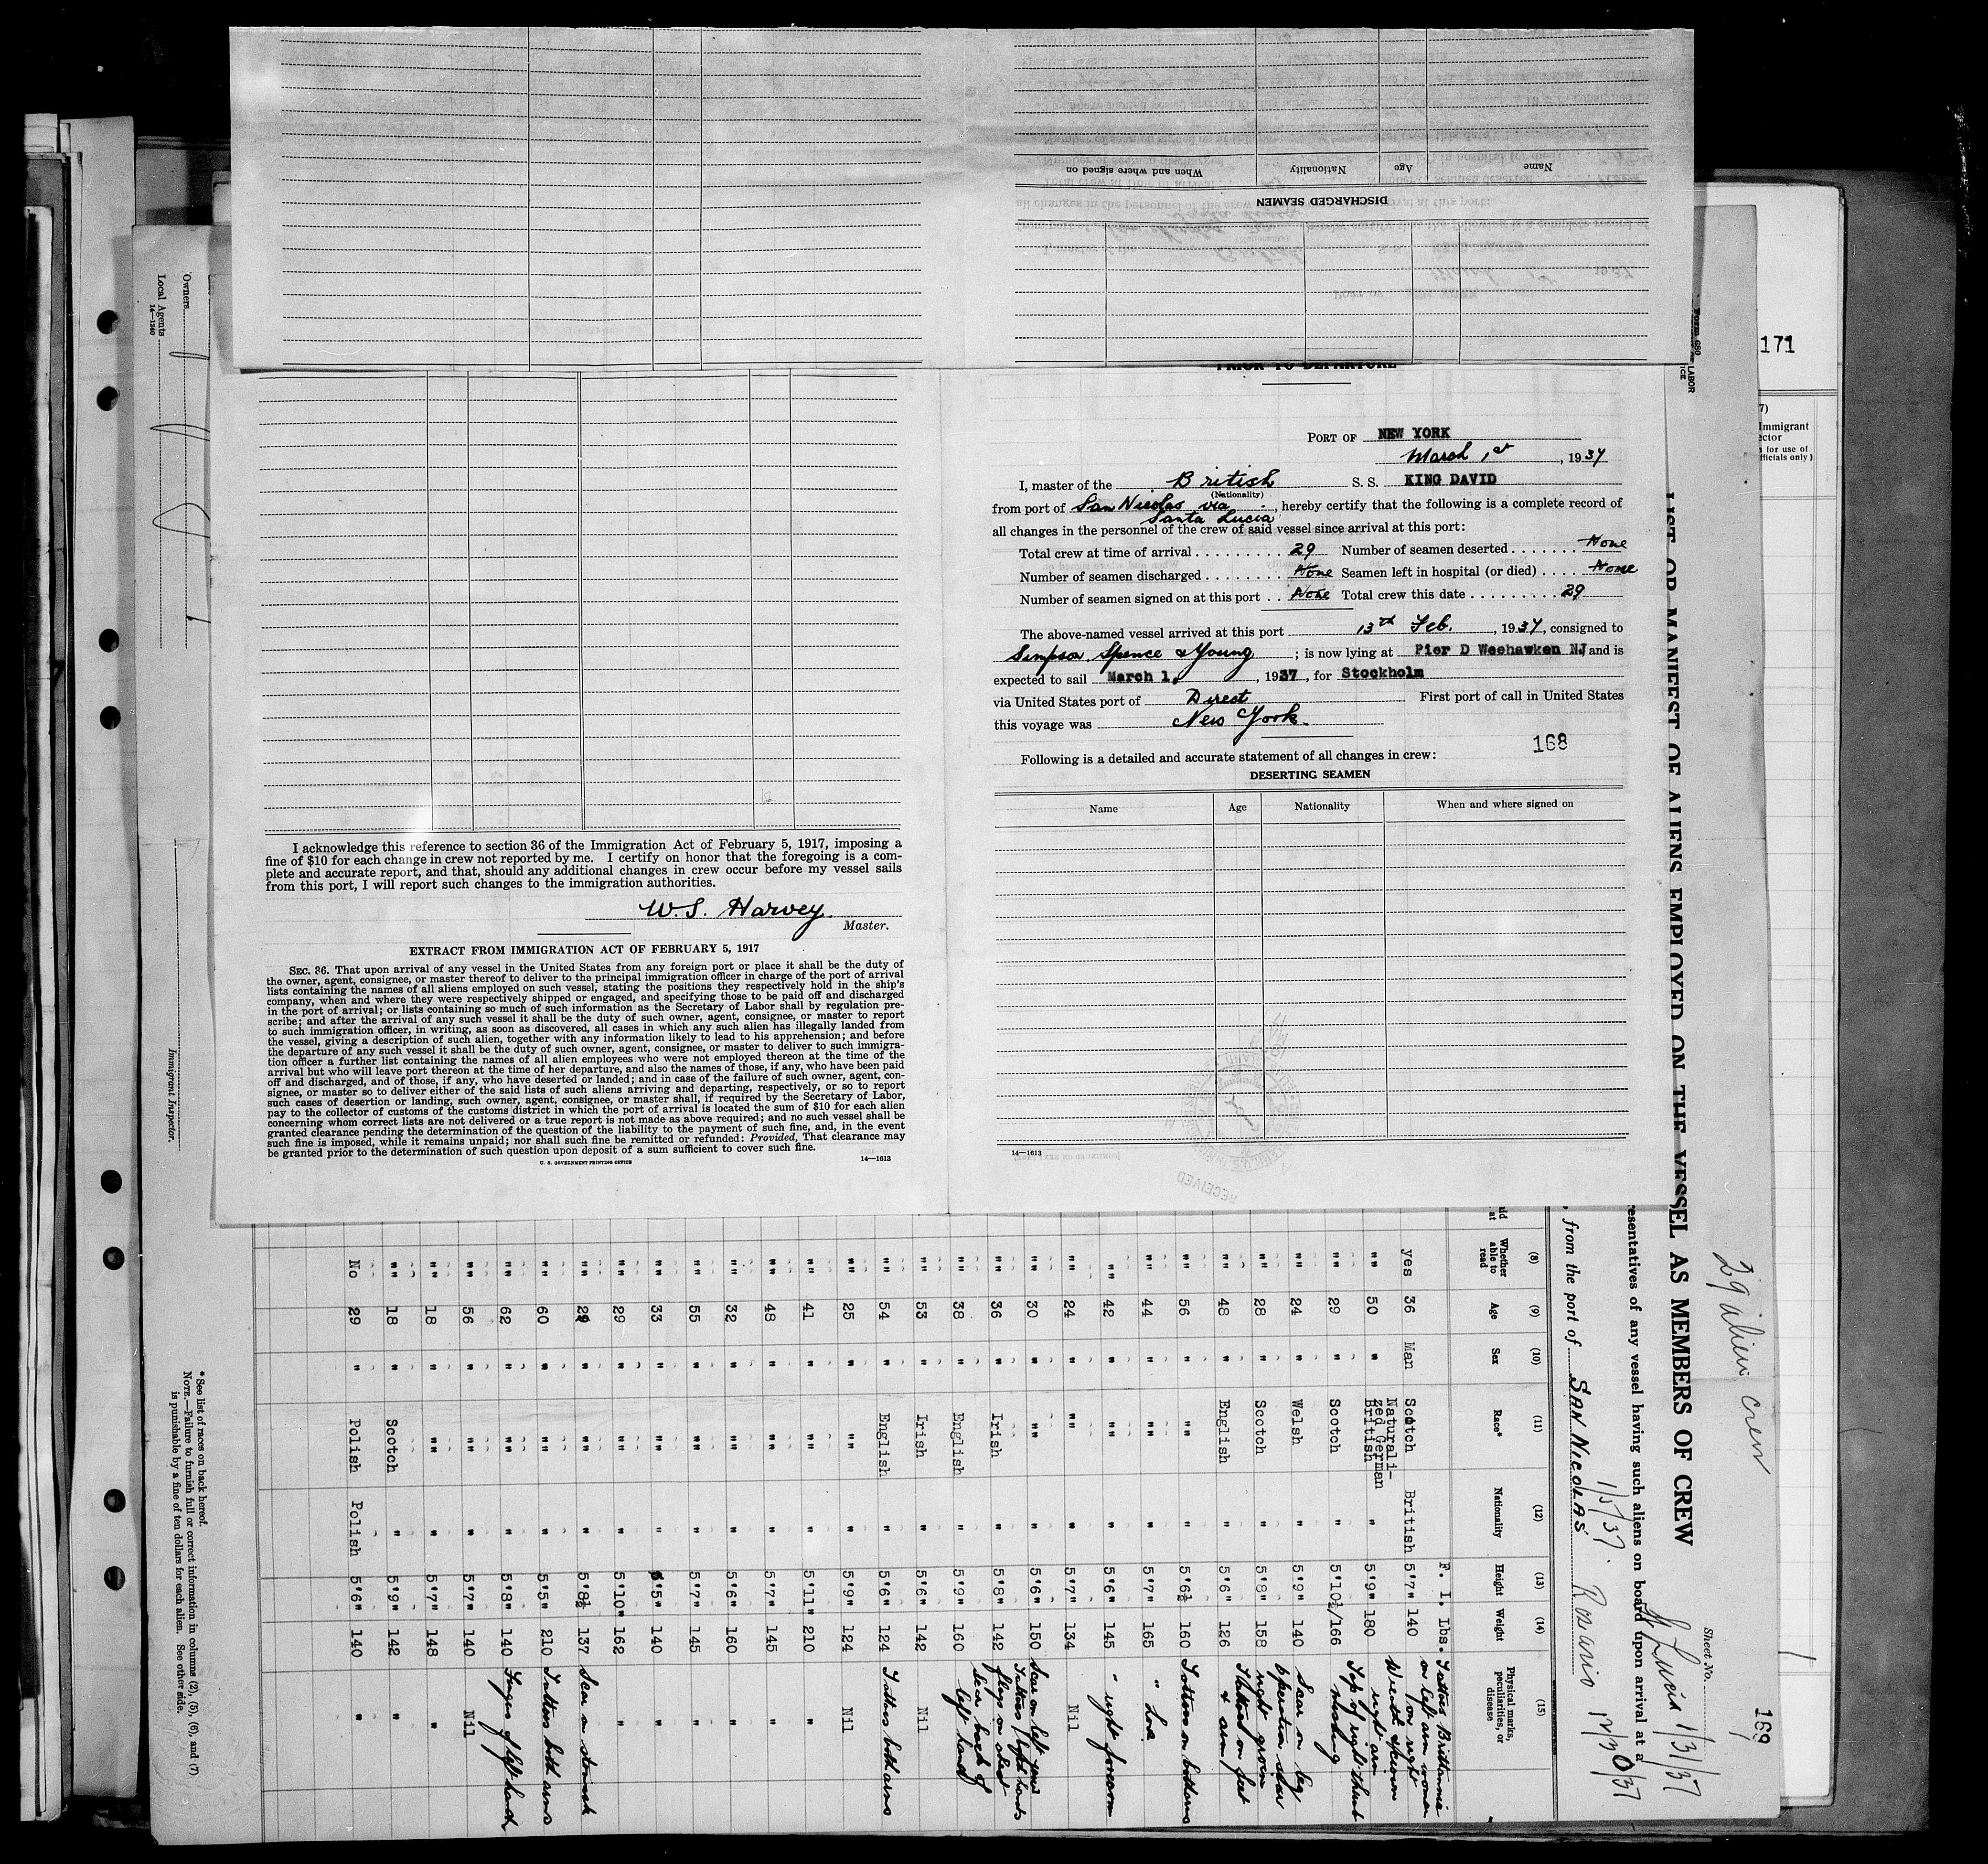 DISCHARGED SEAMEN
Name Age Nationality When and where signed on
PORT OF NEW YORK
March 1st, 1937
I, master of the British S. S. KING DAVID
(Nationality)
from port of San Nicolas via Santa Lucia, hereby certify that the following is a complete record of
all changes in the personnel of the crew of said vessel since arrival at this port:
Total crew at time of arrival . . . . . . . . . 29 Number of seamen deserted . . . . . . . None
Number of seamen discharged . . . . . . . . None Seamen left in hospital (or died) . . . . None
Number of seamen signed on at this port . . None Total crew this date . . . . . . . . . 29
The above-named vessel arrived at this port 13th Feb., 1937, consigned to
Simpson, Spence & Young ; is now lying at Pier D Weehawken NJ and is
expected to sail March 1, 1937, for Stockholm
via United States port of Direct First port of call in United States
this voyage was New York.
168
Following is a detailed and accurate statement of all changes in crew:
DESERTING SEAMEN
Name Age Nationality When and where signed on
14—1613
RECEIVED
I acknowledge this reference to section 36 of the Immigration Act of February 5, 1917, imposing a
fine of $10 for each change in crew not reported by me. I certify on honor that the foregoing is a com-
plete and accurate report, and that, should any additional changes in crew occur before my vessel sails
from this port, I will report such changes to the immigration authorities.
W. S. Harvey.
Master.
EXTRACT FROM IMMIGRATION ACT OF FEBRUARY 5, 1917
SEC. 36. That upon arrival of any vessel in the United States from any foreign port or place it shall be the duty of
the owner, agent, consignee, or master thereof to deliver to the principal immigration officer in charge of the port of arrival
lists containing the names of all aliens employed on such vessel, stating the positions they respectively hold in the ship's
company, when and where they were respectively shipped or engaged, and specifying those to be paid off and discharged
in the port of arrival; or lists containing so much of such information as the Secretary of Labor shall by regulation pre-
scribe; and after the arrival of any such vessel it shall be the duty of such owner, agent, consignee, or master to report
to such immigration officer, in writing, as soon as discovered, all cases in which any such alien has illegally landed from
the vessel, giving a description of such alien, together with any information likely to lead to his apprehension; and before
the departure of any such vessel it shall be the duty of such owner, agent, consignee, or master to deliver to such immigra-
tion officer a further list containing the names of all alien employees who were not employed thereon at the time of the
arrival but who will leave port thereon at the time of her departure, and also the names of those, if any, who have been paid
off and discharged, and of those, if any, who have deserted or landed; and in case of the failure of such owner, agent, con-
signee, or master so to deliver either of the said lists of such aliens arriving and departing, respectively, or so to report
such cases of desertion or landing, such owner, agent, consignee, or master shall, if required by the Secretary of Labor,
pay to the collector of customs of the customs district in which the port of arrival is located the sum of $10 for each alien
concerning whom correct lists are not delivered or a true report is not made as above required; and no such vessel shall be
granted clearance pending the determination of the question of the liability to the payment of such fine, and, in the event
such fine is imposed, while it remains unpaid; nor shall such fine be remitted or refunded: Provided, That clearance may
be granted prior to the determination of such question upon deposit of a sum sufficient to cover such fine.
U. S. GOVERNMENT PRINTING OFFICE
14—1613
171
Form 680
LABOR
Immigrant
for use of
officials only)
Sheet No.
169
29 alien crew
LIST OR MANIFEST OF ALIENS EMPLOYED ON THE VESSEL AS MEMBERS OF CREW
St Lucia 1/31/37
resentatives of any vessel having such aliens on board upon arrival at a
1/5/37. Rosario 12/30/37
, from the port of SAN NICOLAS
(8) (9) (10) (11) (12) (13) (14) (15)
Whether able to read Age Sex Race* Nationality Height Weight Physical marks, peculiarities, or disease
F. I. Lbs.
yes 36 Man Scotch British 5'7" 140 Tattoos Brittannie on left arm woman on right
"" 50 " Naturalized German British " 5'9" 180 right arm
"" 29 " Scotch " 5'10½/166 Top of right thumb missing
"" 24 " Welsh " 5'9" 140 Scar on leg
"" 28 " Scotch " 5'8" 158 operation scar right groin
"" 48 " English " 5'6" 126 Tattoed on feet & arm
"" 56 " "" " 5'6½ 160 Tattoo on
"" 44 " "" " 5'7" 165 "
"" 42 " "" " 5'6" 145 " right forearm
"" 24 " "" " 5'7" 134 Nil
"" 30 " "" " 5'6" 150 Scar on left
"" 36 " Irish " 5'8" 142 Tattoos both hands flags on chest
"" 38 " English " 5'9" 160 Scar back of left hand
"" 53 " Irish " 5'6" 142 Nil
"" 54 " English " 5'6" 124 Tattoos both arms
"" 25 " "" " 5'9" 124 Nil
"" 41 " "" " 5'11" 210 "
"" 48 " "" " 5'7" 145 "
"" 32 " "" " 5'6" 160 "
"" 55 " "" " 5'7" 145 "
"" 33 " "" " 5'5" 140 "
"" 29 " "" " 5'10" 162 "
"" 29 " "" " 5'8½ 137 Scar on stomach
"" 60 " "" " 5'5" 210 Tattoos both arms
"" 62 " "" " 5'8" 140 Finger of left hand
"" 56 " "" " 5'7" 140 Nil
"" 18 " "" " 5'7" 148 "
"" 18 " Scotch " 5'9" 142 "
No 29 " Polish Polish 5'6" 140 "
* See list of races on back hereof.
NOTE.—Failure to furnish full or correct information in columns (2), (5), (6), and (7)
is punishable by a fine of ten dollars for each alien. See other side.
Owners
Local Agents
14—1240
Immigrant Inspector.